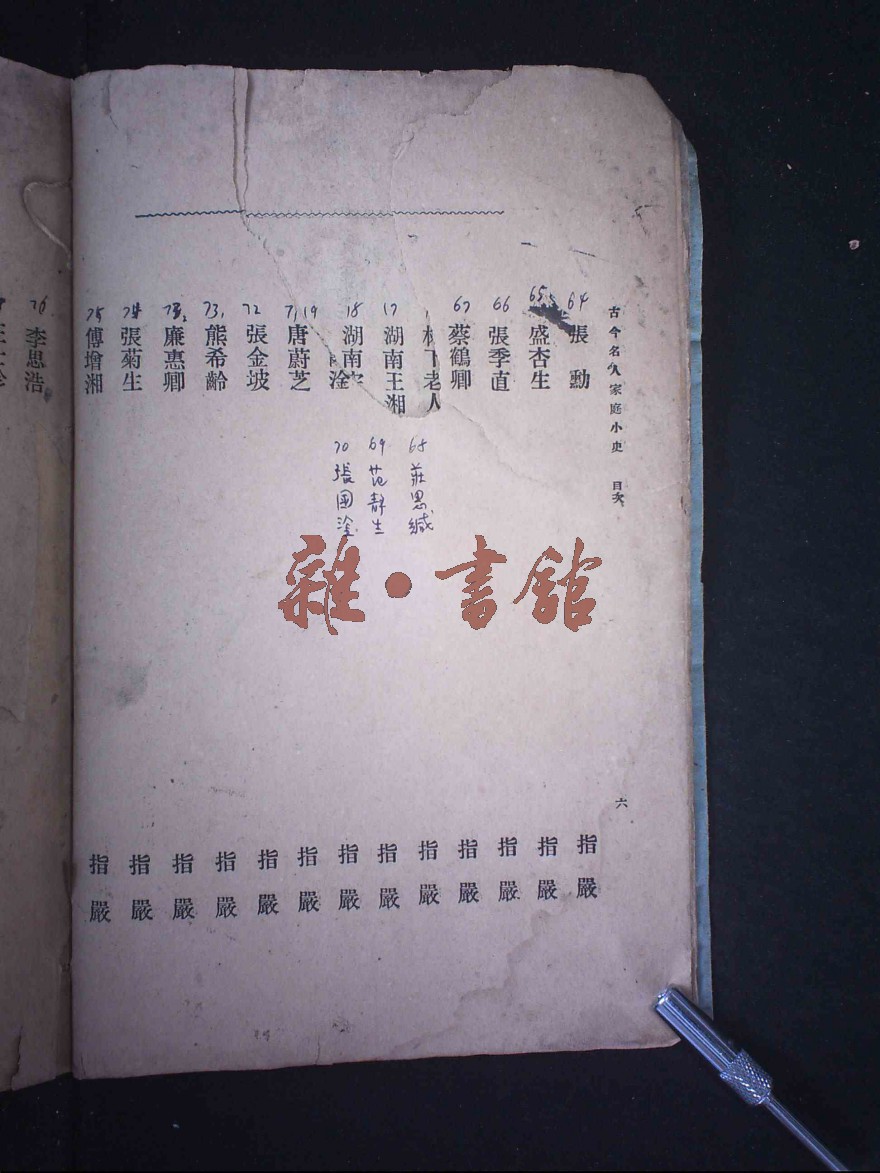 古今名人家庭小史 目次
六
64 張勳 指嚴
65 盛杏生 指嚴
66 張季直 指嚴
67 蔡鶴卿 指嚴
下老人 指嚴
68 莊思緘
17 湖南王湘 指嚴
69 范靜生
18 湖南 淦 指嚴
70 張國淦
71 19 唐蔚芝 指嚴
72 張金坡 指嚴
73 熊希齡 指嚴
廉惠卿 指嚴
張菊生 指嚴
75 傅增湘 指嚴
76 李思浩
雜·書館